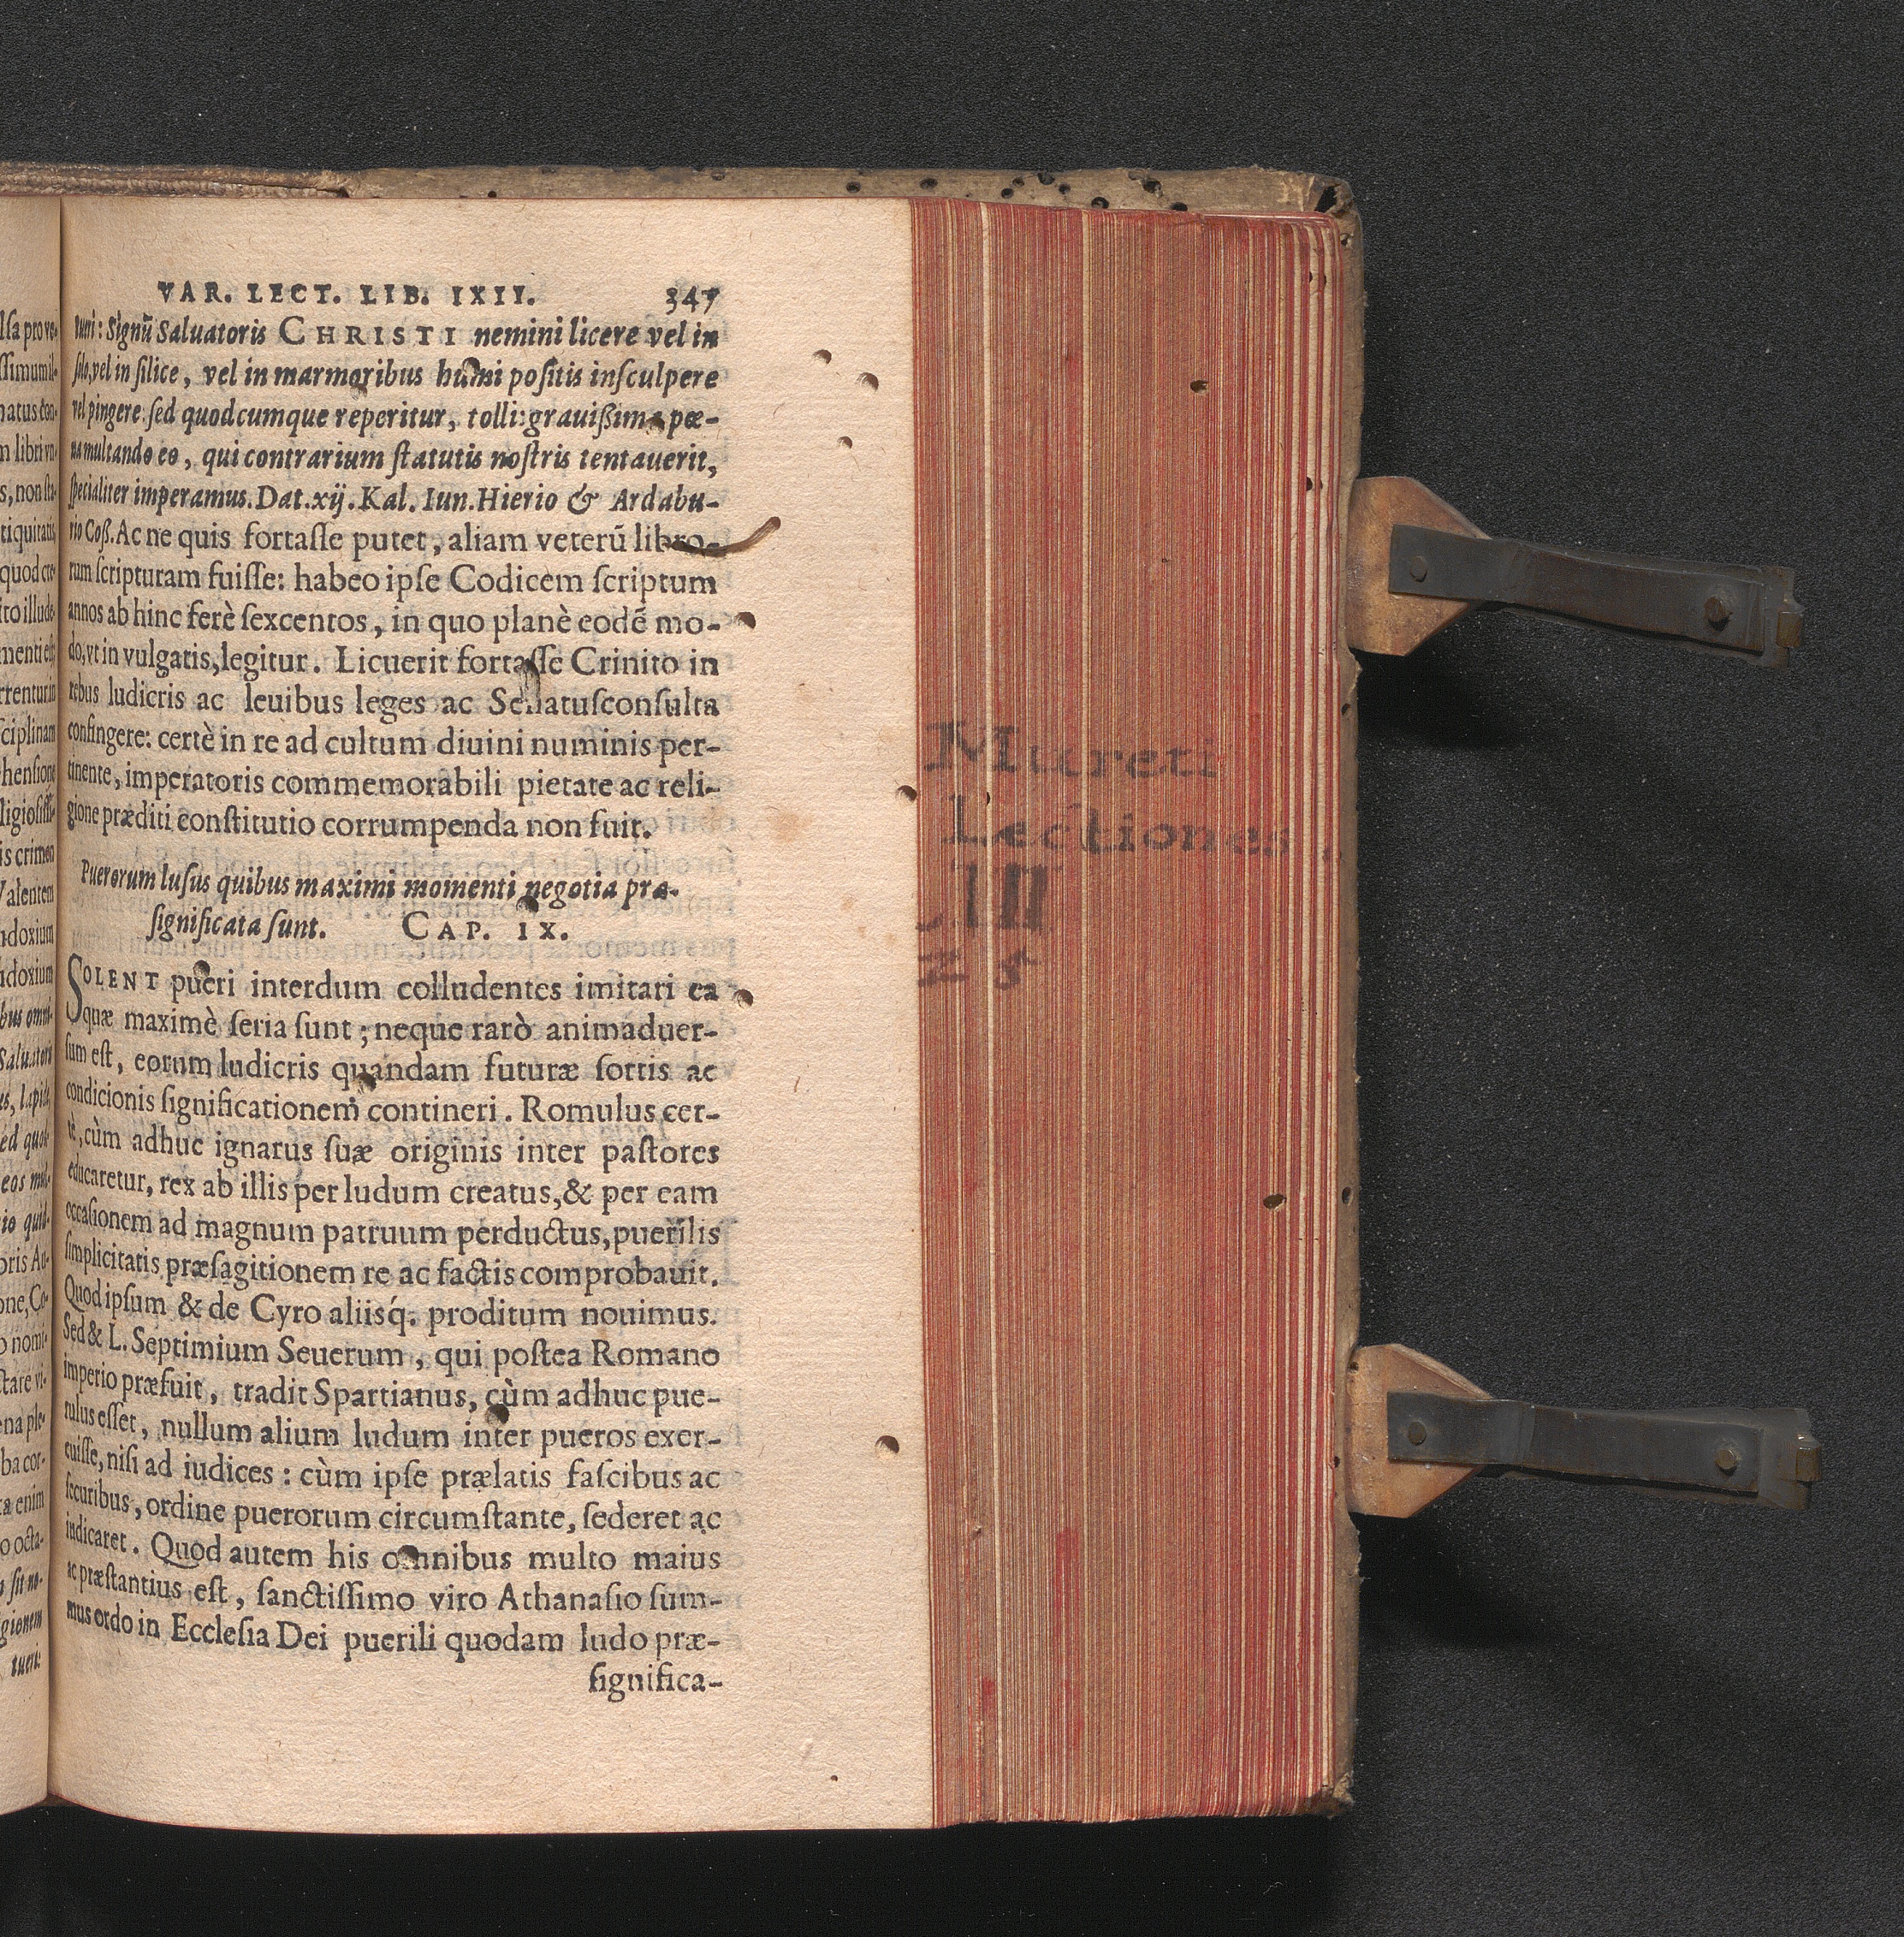 VAR. LECT. LIB. IXII. 347
tueri: Signũ Saluatoris CHRISTI nemini licere vel in
solo, vel in silice, vel in marmoribus humi positis insculpere
vel pingere: sed quodcumque reperitur, tolli: grauißima pœ-
na multando eo, qui contrarium statutis nostris tentauerit,
specialiter imperamus. Dat. xij. Kal. Iun. Hierio & Ardabu-
rio Coß. Ac ne quis fortasse putet, aliam veterũ libro-
rum scripturam fuisse: habeo ipse Codicem scriptum
annos ab hinc ferè sexcentos, in quo planè eodẽ mo-
do, vt in vulgatis, legitur. Licuerit fortasse Crinito in
rebus ludicris ac leuibus leges ac Senatusconsulta
confingere: certè in re ad cultum diuini numinis per-
tinente, imperatoris commemorabili pietate ac reli-
gione præditi constitutio corrumpenda non fuit.
Puerorum lusus quibus maximi momenti negotia præ-
significata sunt. CAP. IX.
SOLENT pueri interdum colludentes imitari ea
quæ maximè seria sunt; neque rarò animaduer-
sum est, eorum ludicris quandam futuræ sortis ac
condicionis significationem contineri. Romulus cer-
tè, cùm adhuc ignarus suæ originis inter pastores
educaretur, rex ab illis per ludum creatus, & per eam
occasionem ad magnum patruum perductus, puerilis
simplicitatis præsagitionem re ac factis comprobauit.
Quod ipsum & de Cyro aliisq́. proditum nouimus.
Sed & L. Septimium Seuerum, qui postea Romano
imperio præfuit, tradit Spartianus, cùm adhuc pue-
rulus esset, nullum alium ludum inter pueros exer-
cuisse, nisi ad iudices: cùm ipse prælatis fascibus ac
securibus, ordine puerorum circumstante, sederet ac
iudicaret. Quod autem his omnibus multo maius
ac præstantius est, sanctissimo viro Athanasio sum-
mus ordo in Ecclesia Dei puerili quodam ludo præ-
significa-
Mureti
Lectiones